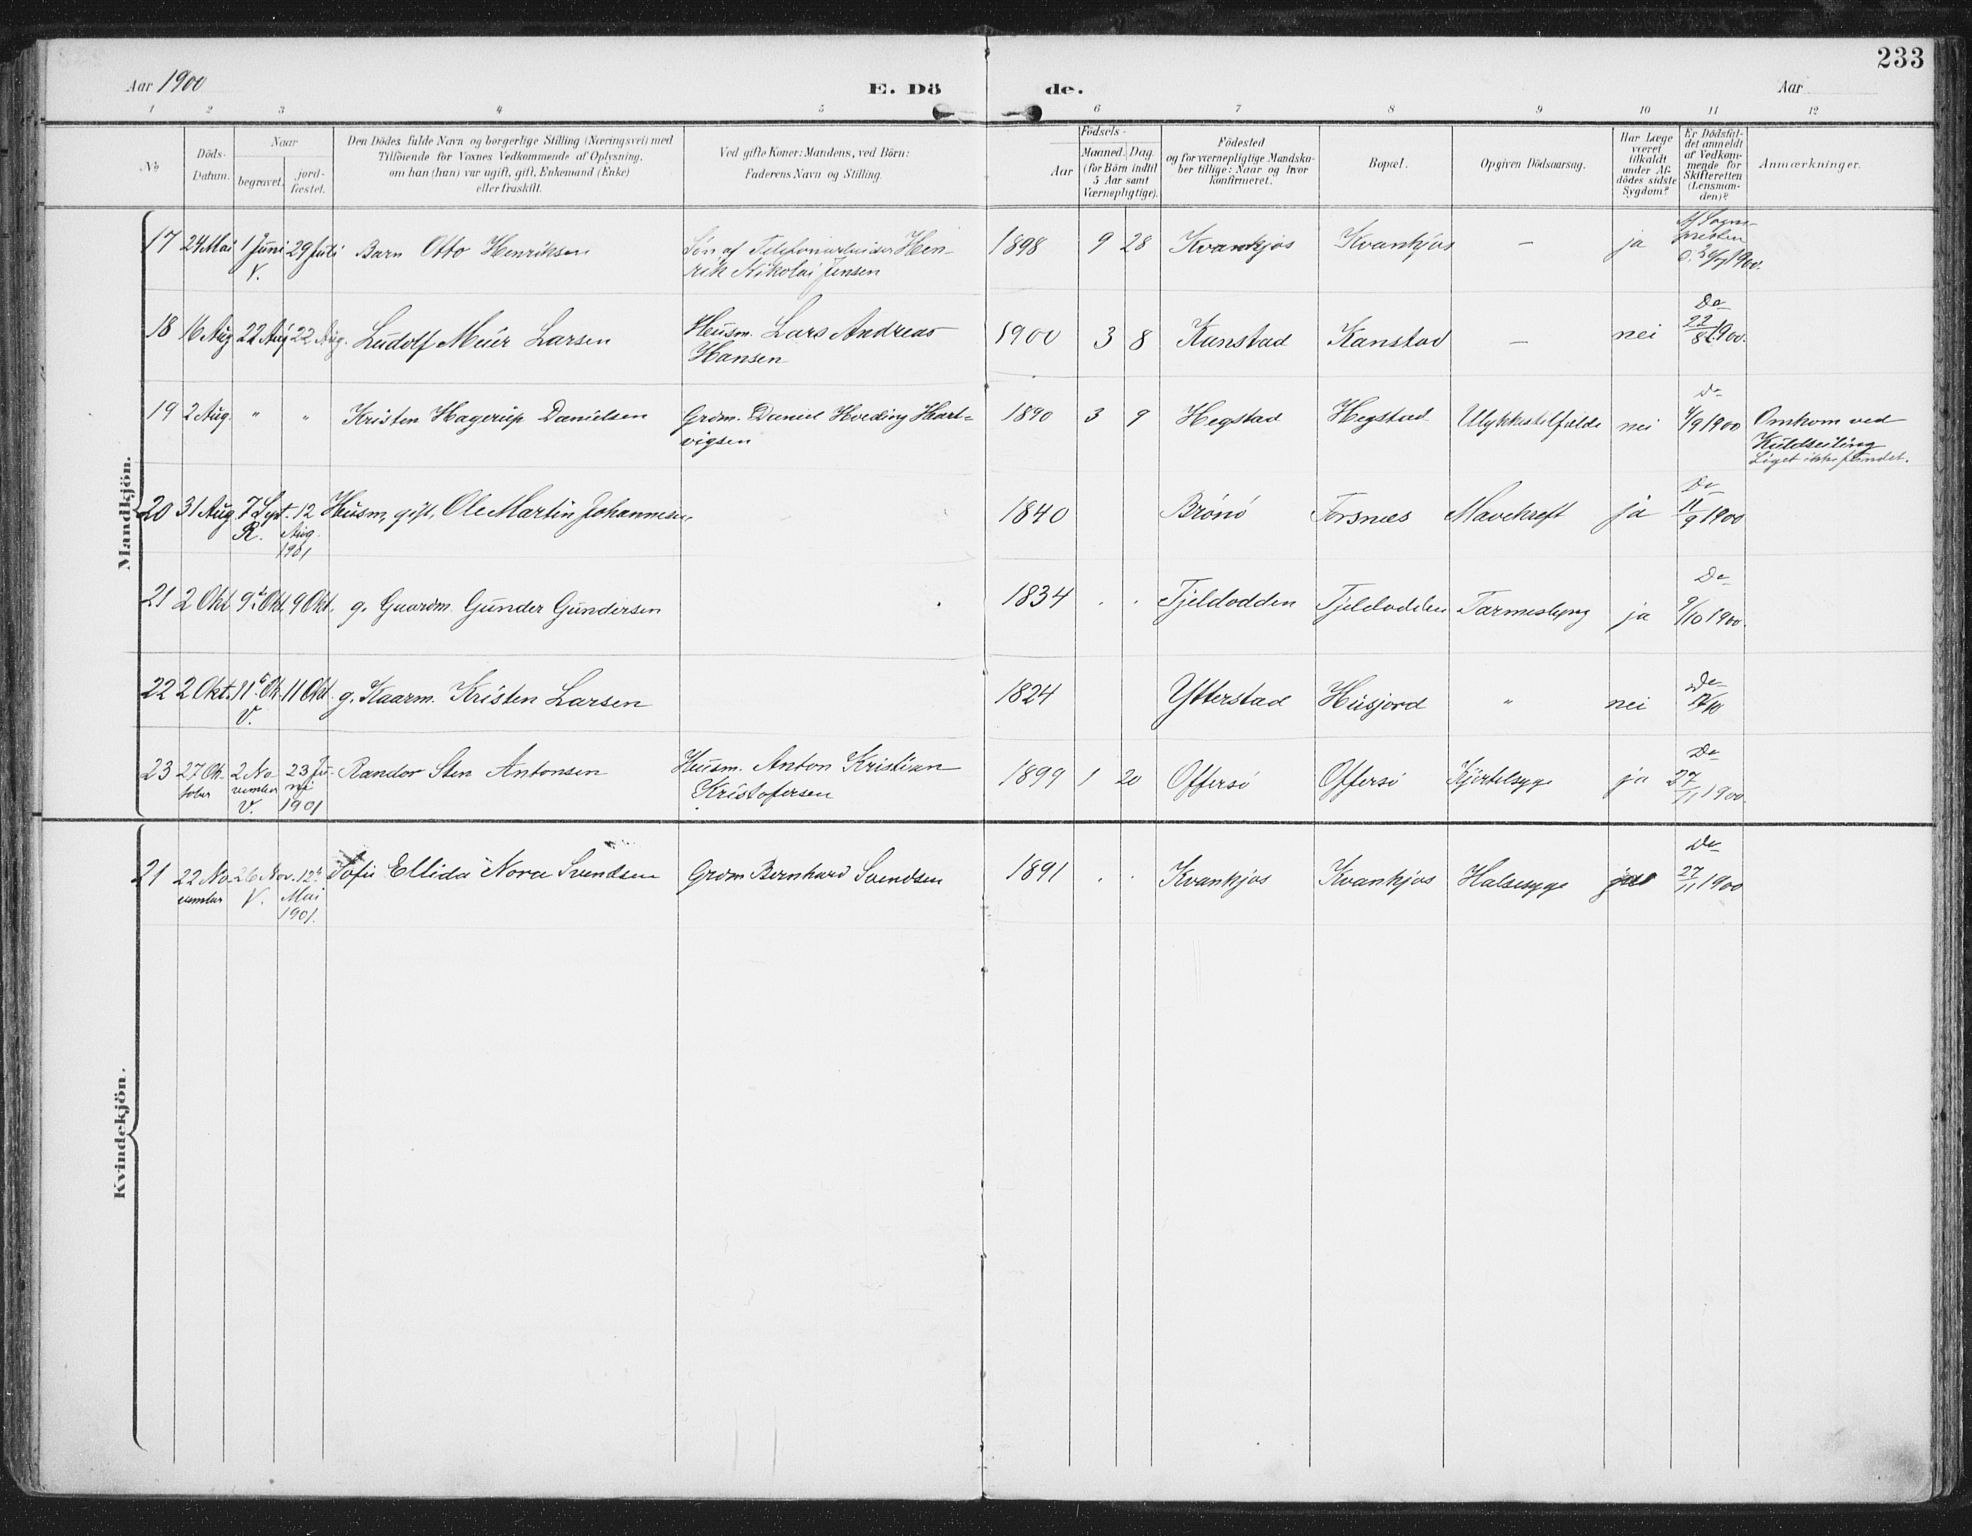 233
Aar 1900 E. Dö de. Aar
1 2 3 4 5 6 7 8 9 10 11 12
No
Döds-
Datum.
Naar
begravet.
jord-
fæstet.
Den Dödes fulde Navn og borgerlige Stilling (Næringsvei) med
Tilföiende for Voxnes Vedkommende af Oplysning,
om han (hun) var ugift, gift, Enkemand (Enke)
eller fraskilt.
Ved gifte Koner: Mandens, ved Börn:
Faderens Navn og Stilling.
Födsels-
Aar
Maaned. Dag.
(for Börn indtil
5 Aar samt
Værnepligtige).
Födested
og for værnepligtige Mandska-
ber tillige: Naar og hvor
konfirmeret.
Bopæl.
Opgiven Dödsaarsag.
Har Læge
været
tilkaldt
under Af-
dödes sidste
Sygdom?
Er Dödsfal-
det anmeldt
af Vedkom-
mende for
Skifteretten
(Lensman-
den)?
Anmærkninger.
Mandkjön.
17 24 Mai 1 Juni 29 Juli Barn Otto Henriksen Søn af Telefonarbeider Hen- 1898 9 28 Kvankjos Kvankjos — ja
V. rik Nikolai Jensen 1900.
18 16 Aug 22 Aug 22 Aug. Ludolf Meier Larsen Husm. Lars Andreas 1900 3 8 Kanstad Kanstad — nei Do 22/8 1900.
Hansen
19 2 Aug. " " Kristen Hagerup Danielsen Grdm. Daniel Hveding Hart- 1890 3 9 Hegstad Hegstad Ulykkestilfælde nei Do 4/9 1900 Omkom ved
vigsen Kuldseiling
Liget ikke fundet.
20 31 Aug 7 Sept. 12 Husm, gift, Ole Martin Johannesen, 1840 Brønø Forsnes Mavekreft ja Do 11/9 1900
R. Aug.
1901
21 2 Okt 9 Okt. 9 Okt. g. Gaardm. Gunder Gundersen 1834 . . Tjeldodden Tjeldodden Tarmeslyng ja Do 9/10 1900.
22 2 Okt. 11 Ok. 11 Okt. g. Kaarm. Kristen Larsen 1824 Ytterstad Husjord " nei Do
V.
23 27 Ok- 2 No- 23 Ju- Randor Sten Antonsen Husm. Anton Kristian 1899 1 20 Offersø Offersø Kjertelsyge ja Do 27/11 1900.
tober vember ni Kristofersen
V. 1901
Kvindekjön.
21 22 No- 26 Nov. 12te Sofie Ellida Nora Svendsen Grdm Bernhard Svendsen 1891 . . Kvankjos Kvankjos Halsesyge ja Do 27/11 1900
vember V. Mai
1901.